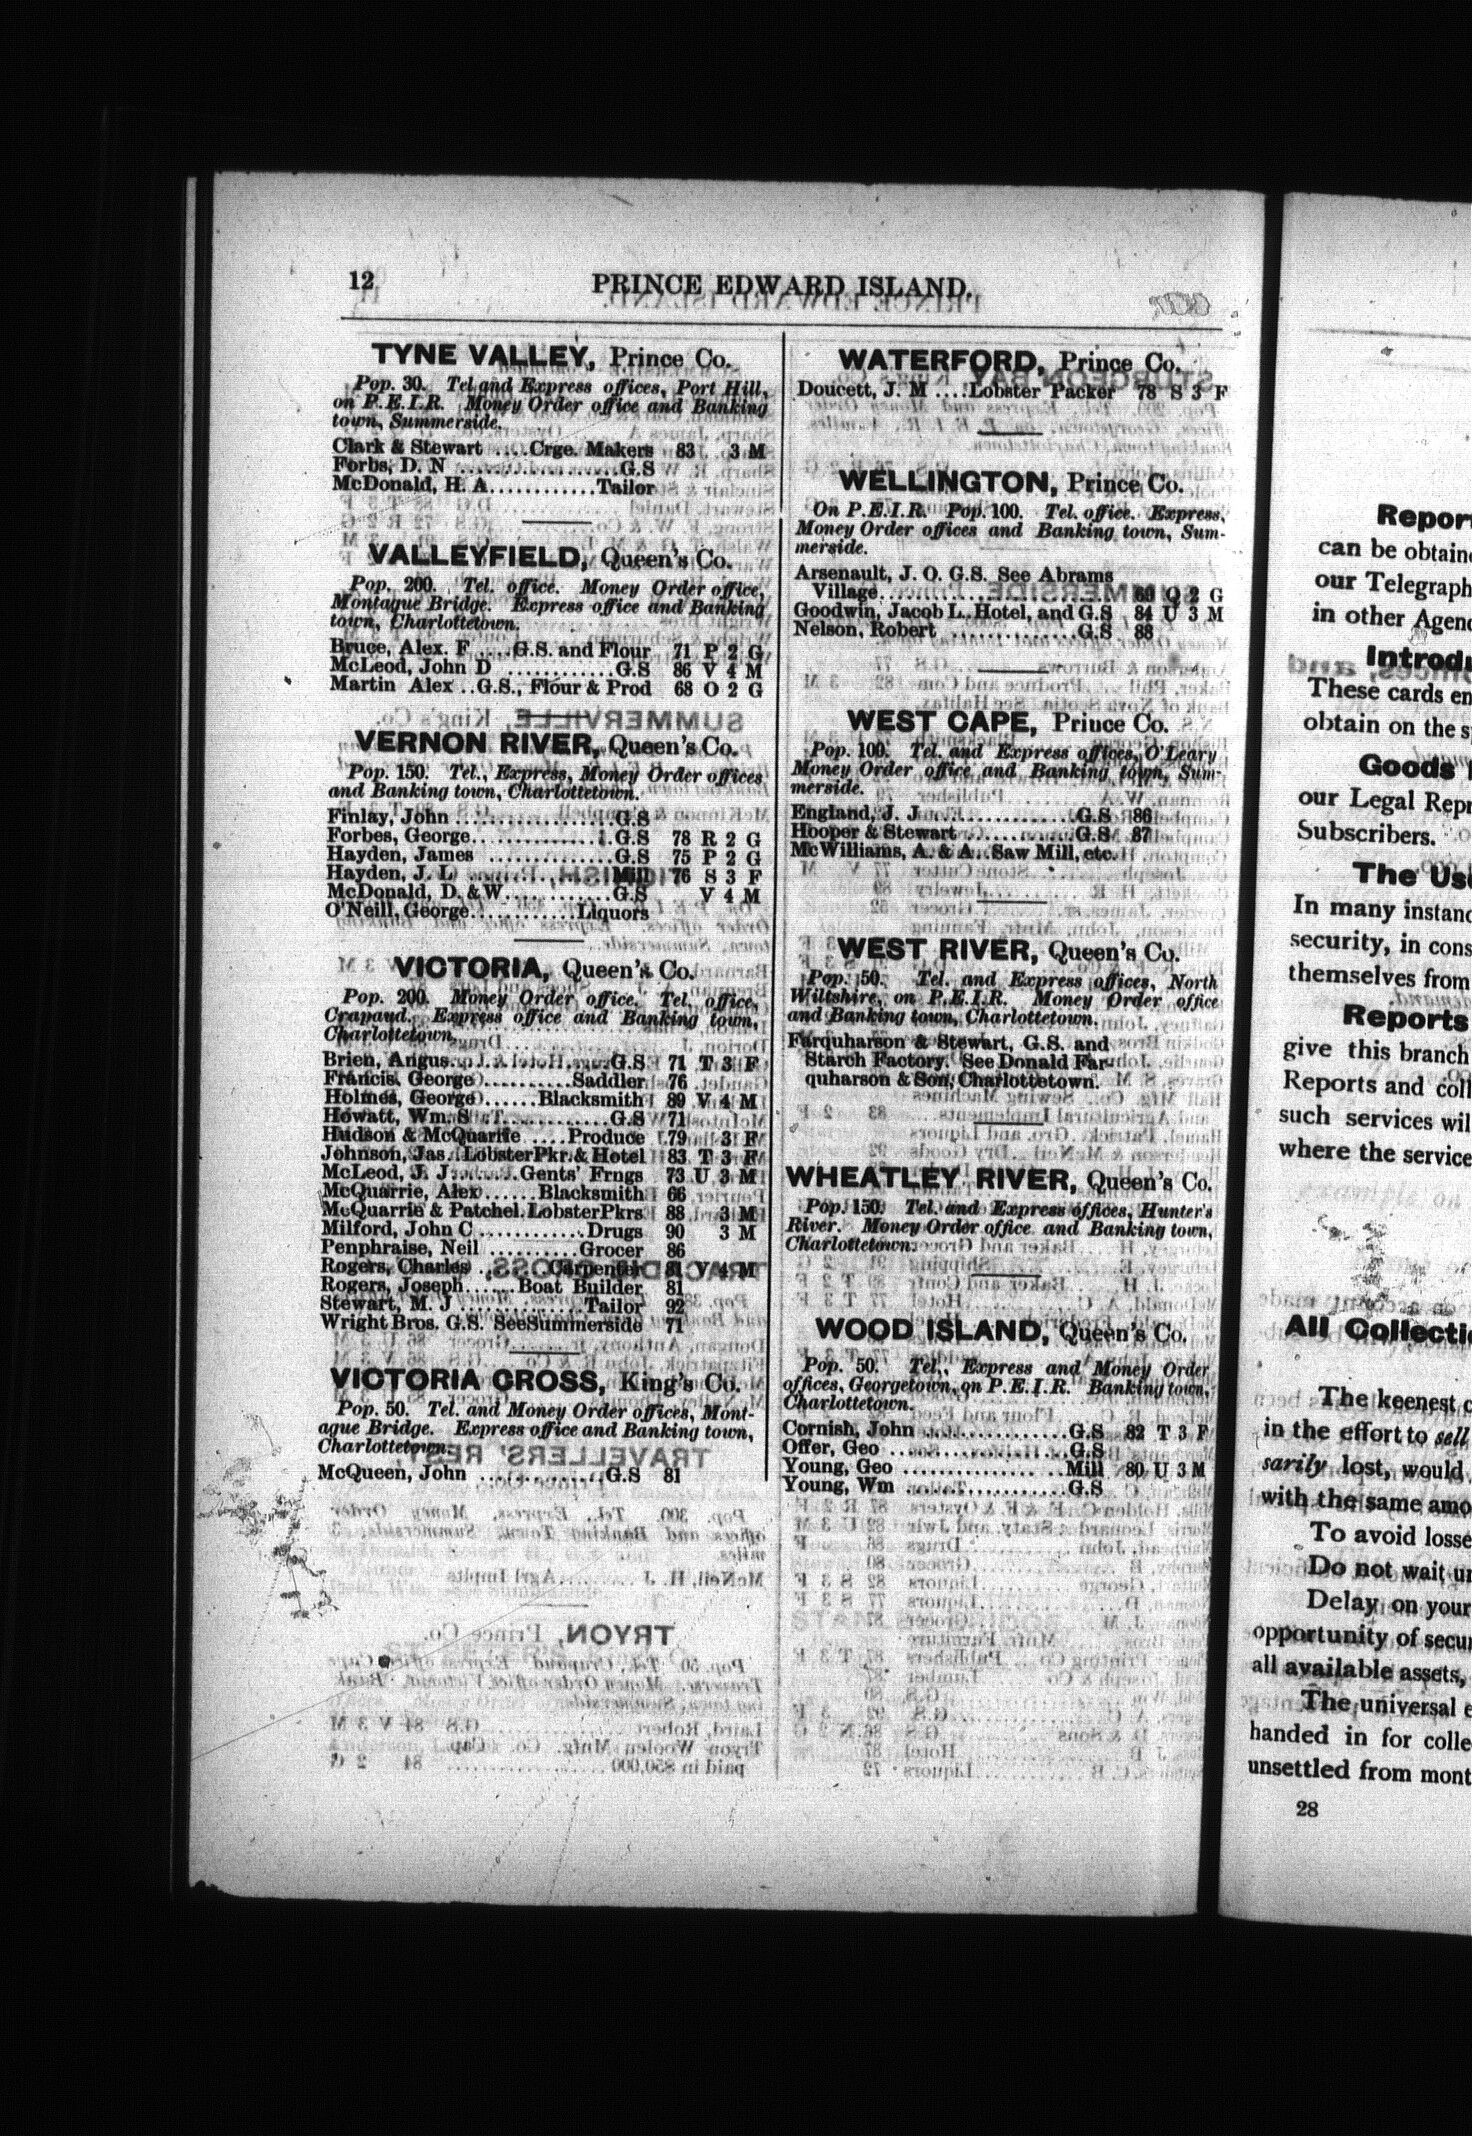 12
PRINCE EDWARD ISLAND.
TYNE VALLEY, Prince Co.
Pop. 30. Tel and Express offices, Port Hill,
on P.E.I.R. Money Order office and Banking
town, Summerside.
Clark & Stewart ....Crge. Makers 83 3 M
Forbs, D. N ..................G.S
McDonald, H. A............Tailor
VALLEYFIELD, Queen's Co.
Pop. 200. Tel. office. Money Order office,
Montague Bridge. Express office and Banking
town, Charlottetown.
Bruce, Alex. F ....G.S. and Flour 71 P 2 G
McLeod, John D ............G.S 86 V 4 M
Martin Alex..G.S., Flour & Prod 68 O 2 G
VERNON RIVER, Queen's Co.
Pop. 150. Tel., Express, Money Order offices
and Banking town, Charlottetown.
Finlay, John ..................G.S
Forbes, George................G.S 78 R 2 G
Hayden, James ..............G.S 75 P 2 G
Hayden, J. L ................Mill 76 S 3 F
McDonald, D. & W............G.S V 4 M
O'Neill, George............Liquors
VICTORIA, Queen's Co.
Pop. 200. Money Order office. Tel. office,
Crapaud. Express office and Banking town,
Charlottetown.
Brien, Angus................G.S 71 T 3 F
Francis, George..........Saddler 76
Holmes, George......Blacksmith 89 V 4 M
Howatt, Wm. S ..............G.S 71
Hudson & McQuarrie ....Produce 79 3 F
Johnson, Jas..LobsterPkr.& Hotel 83 T 3 F
McLeod, J. J........Gents' Frngs 73 U 3 M
McQuarrie, Alex......Blacksmith 66
McQuarrie & Patchel.LobsterPkrs 88 3 M
Milford, John C ............Drugs 90 3 M
Penphraise, Neil ..........Grocer 86
Rogers, Charles ........Carpenter 81 V 4 M
Rogers, Joseph......Boat Builder 81
Stewart, M. J ..............Tailor 92
Wright Bros. G.S. See Summerside 71
VICTORIA CROSS, King's Co.
Pop. 50. Tel. and Money Order offices, Mont-
ague Bridge. Express office and Banking town,
Charlottetown.
McQueen, John ..............G.S 81
WATERFORD, Prince Co.
Doucett, J. M ....Lobster Packer 78 S 3 F
WELLINGTON, Prince Co.
On P.E.I.R. Pop. 100. Tel. office. Express,
Money Order offices and Banking town, Sum-
merside.
Arsenault, J. O. G.S. See Abrams
Village........................ 69 Q 2 G
Goodwin, Jacob L..Hotel, and G.S 84 U 3 M
Nelson, Robert ..............G.S 88
WEST CAPE, Prince Co.
Pop. 100. Tel. and Express offices, O'Leary
Money Order office and Banking town, Sum-
merside.
England, J. J ................G.S 86
Hooper & Stewart ............G.S 87
McWilliams, A. & A..Saw Mill, etc.
WEST RIVER, Queen's Co.
Pop. 50. Tel. and Express offices, North
Wiltshire, on P.E.I.R. Money Order office
and Banking town, Charlottetown.
Farquharson & Stewart, G.S. and
Starch Factory. See Donald Far-
quharson & Son, Charlottetown.
WHEATLEY RIVER, Queen's Co.
Pop. 150. Tel. and Express offices, Hunter's
River. Money Order office and Banking town,
Charlottetown.
WOOD ISLAND, Queen's Co.
Pop. 50. Tel., Express and Money Order
offices, Georgetown, on P.E.I.R. Banking town,
Charlottetown.
Cornish, John ..............G.S 82 T 3 F
Offer, Geo ..................G.S
Young, Geo ................Mill 80 U 3 M
Young, Wm ................G.S
can be
our Telegraph
in other
These cards
obtain on the
Goods
our Legal
Subscribers.
The
In many
security, in
themselves from
Reports
give this branch
Reports and
such services
where the service
All
The keenest
in the effort to sell
sarily lost, would
with the same
To avoid
Do not wait
Delay on your
opportunity of
all available assets,
The universal
handed in for
unsettled from
28